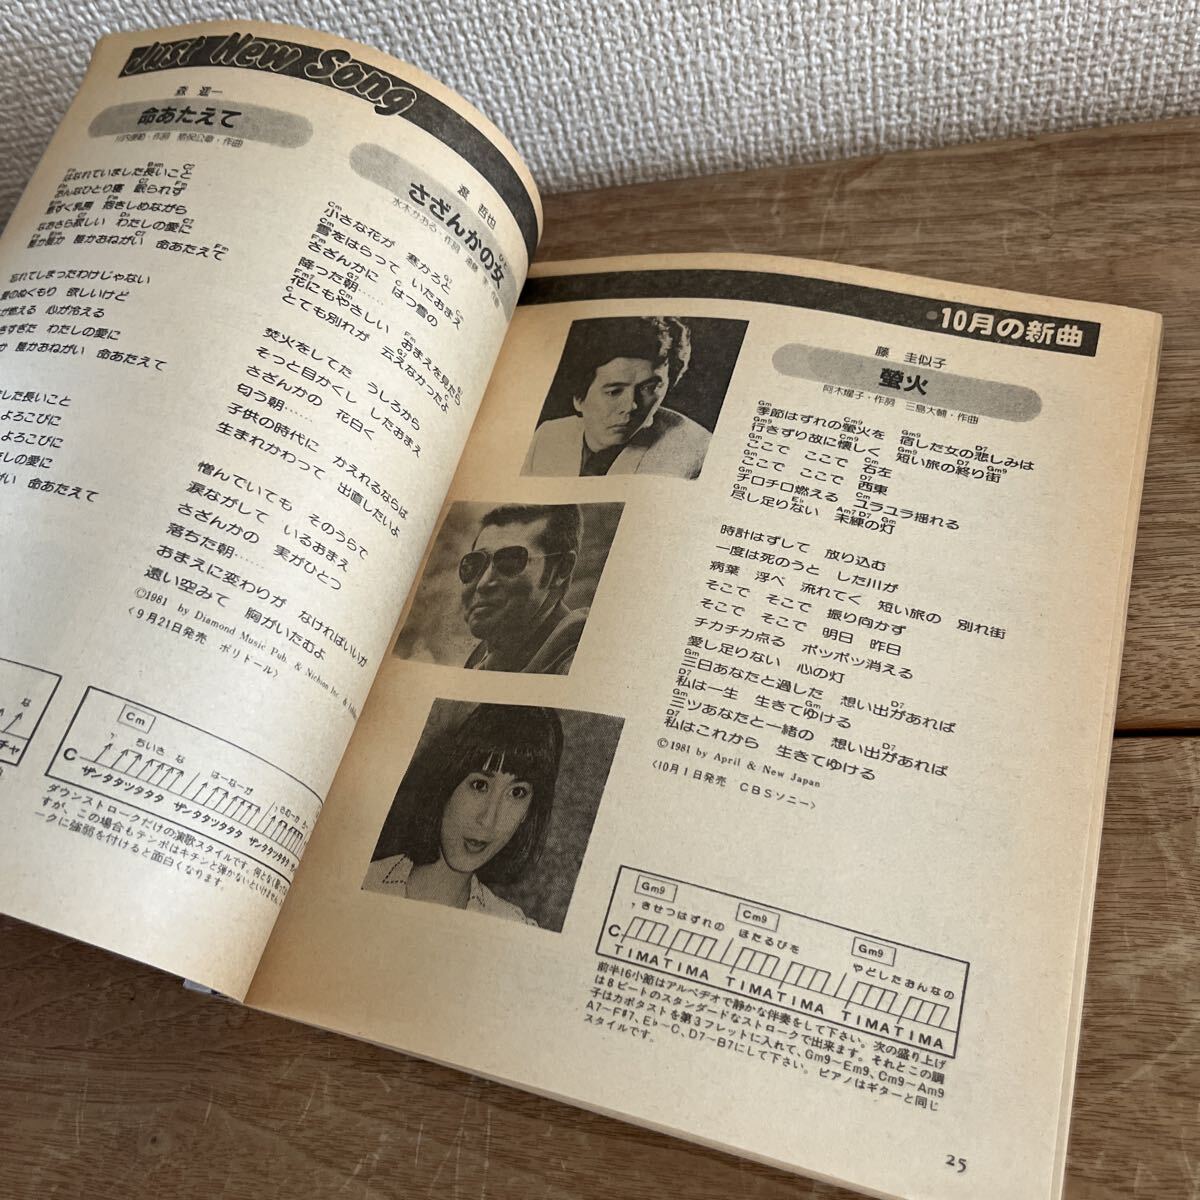 Just New Song
森 進一
命あたえて
川内康範・作詞 猪俣公章・作曲
はなれていました長いこと
なおさら欲しい わたしの愛に
誰か誰か 誰かおねがい 命あたえて
忘れてしまったわけじゃない
ぬくもり 欲しいけど
燃える 心が冷える
きすぎた わたしの愛に
か 誰かおねがい 命あたえて
した長いこと
よろこびに
よろこびに
しの愛に
い 命あたえて
渡 哲也
さざんかの女
水木かおる・作詞
小さな花が 寒かろと
雪をはらって いたおまえ
さざんかに はつ雪の
降った朝……
花にもやさしい おまえを見たら
とても別れが 云えなかったよ
焚火をしてた うしろから
そっと目かくし したおまえ
さざんかの 花白く
匂う朝……
子供の時代に かえれるならば
生まれかわって 出直したいよ
憎んでいても そのうらで
涙ながして いるおまえ
さざんかの 実がひとつ
落ちた朝……
おまえに変わりが なければいいが
遠い空みて 胸がいたむよ
©1981 by Diamond Music Pub. & Nichion Inc. &
〈9月21日発売 ポリドール〉
Cm
ちいさ な はーなーが さむーか
C ザンタタツタタタ ザンタタツタタタ ザンタタツタタタ
ダウンストロークだけの演歌スタイルです。何となく
すが、この場合もテンポはキチンと弾かないといけません。
ークに強弱を付けると面白くなります。
●10月の新曲
藤 圭似子
螢火
阿木燿子・作詞 三島大輔・作曲
Gm Cm9 Gm9 D7
季節はずれの螢火を 宿した女の悲しみは
Gm Cm9 Gm9 D7 Gm9
行きずり故に懐しく 短い旅の終り街
Gm Cm
ここで ここで 右左
Gm D7
ここで ここで 西東
Gm Cm
チロチロ燃える ユラユラ揺れる
Gm E♭ Am7 D7 Gm
尽し足りない 未練の灯
時計はずして 放り込む
一度は死のうと した川が
病葉 浮べ 流れてく 短い旅の 別れ街
そこで そこで 振り向かず
そこで そこで 明日 昨日
チカチカ点る ポッポッ消える
愛し足りない 心の灯
Gm D7
三日あなたと過した 想い出があれば
D7 Gm
私は一生 生きてゆける
Gm D7
三ツあなたと一緒の 想い出があれば
D7
私はこれから 生きてゆける
©1981 by April & New Japan
〈10月1日発売 CBSソニー〉
Gm9 Cm9 Gm9
きせつはずれの ほたるびを やどしたおんなの
C TIMATIMA TIMATIMA TIMATIMA
前半16小節はアルペヂオで静かな伴奏をして下さい。次の盛り上げ
は8ビートのスタンダードなストロークで出来ます。それとこの調
子はカポタストを第3フレットに入れて、Gm9〜Em9、Cm9〜Am9
A7〜F♯7、E♭〜C、D7〜B7にして下さい。ピアノはギターと同じ
スタイルです。
25